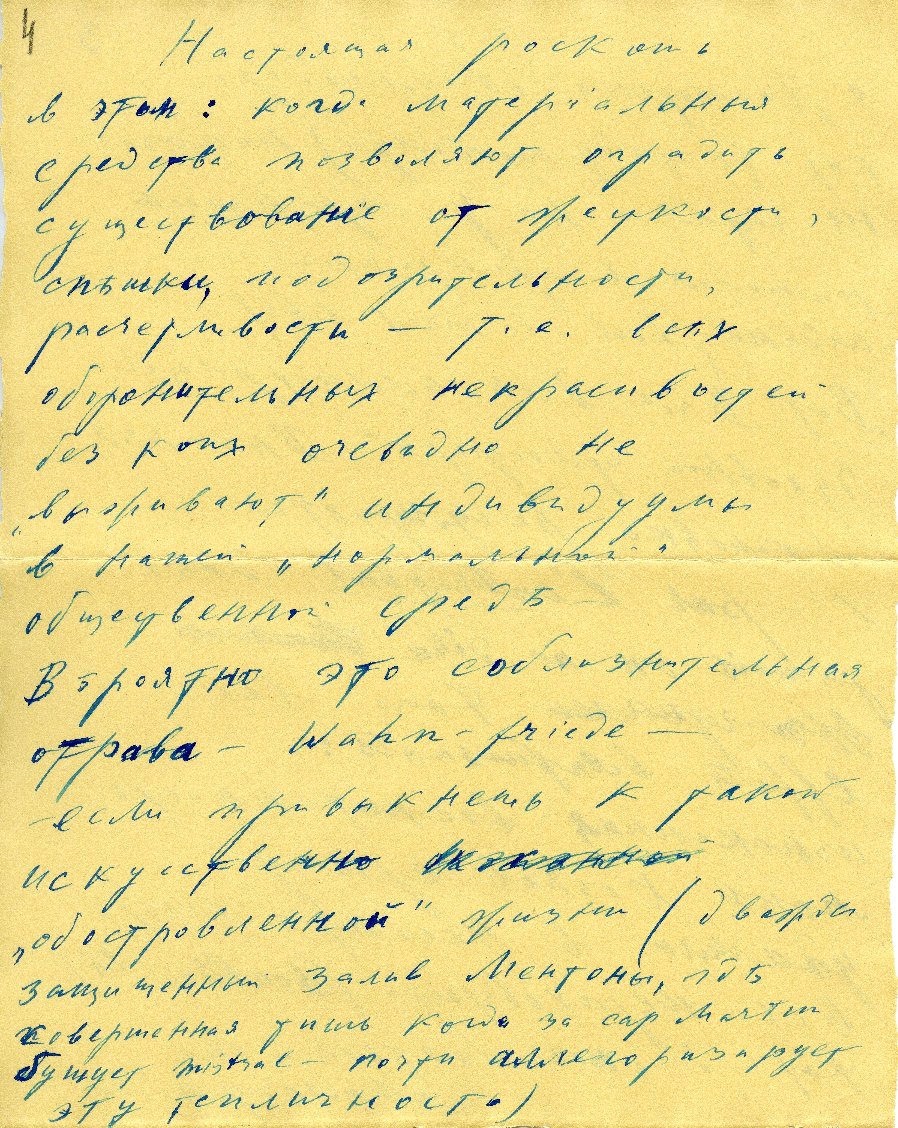 4
Настоящая роскошь
в этом: когда матеріальныя
средства позволяют оградить
существованіе от жесткости,
спѣшки, подозрительности,
расчетливости — т. е. всѣх
оборонительных некрасивостей
без коих очевидно не
„выживают" индивидуумы
в нашей „нормальной"
общественной средѣ —
Вѣроятно это соблазнительная
отрава — Wahn-friede —
если привыкнешь к такой
искусственно
„обостровленной" жизни (дважды
защищенный залив Ментоны, гдѣ
совершенная тишь когда за cap Martin
бушует mistral — почти аллегоризирует
эту тепличность)